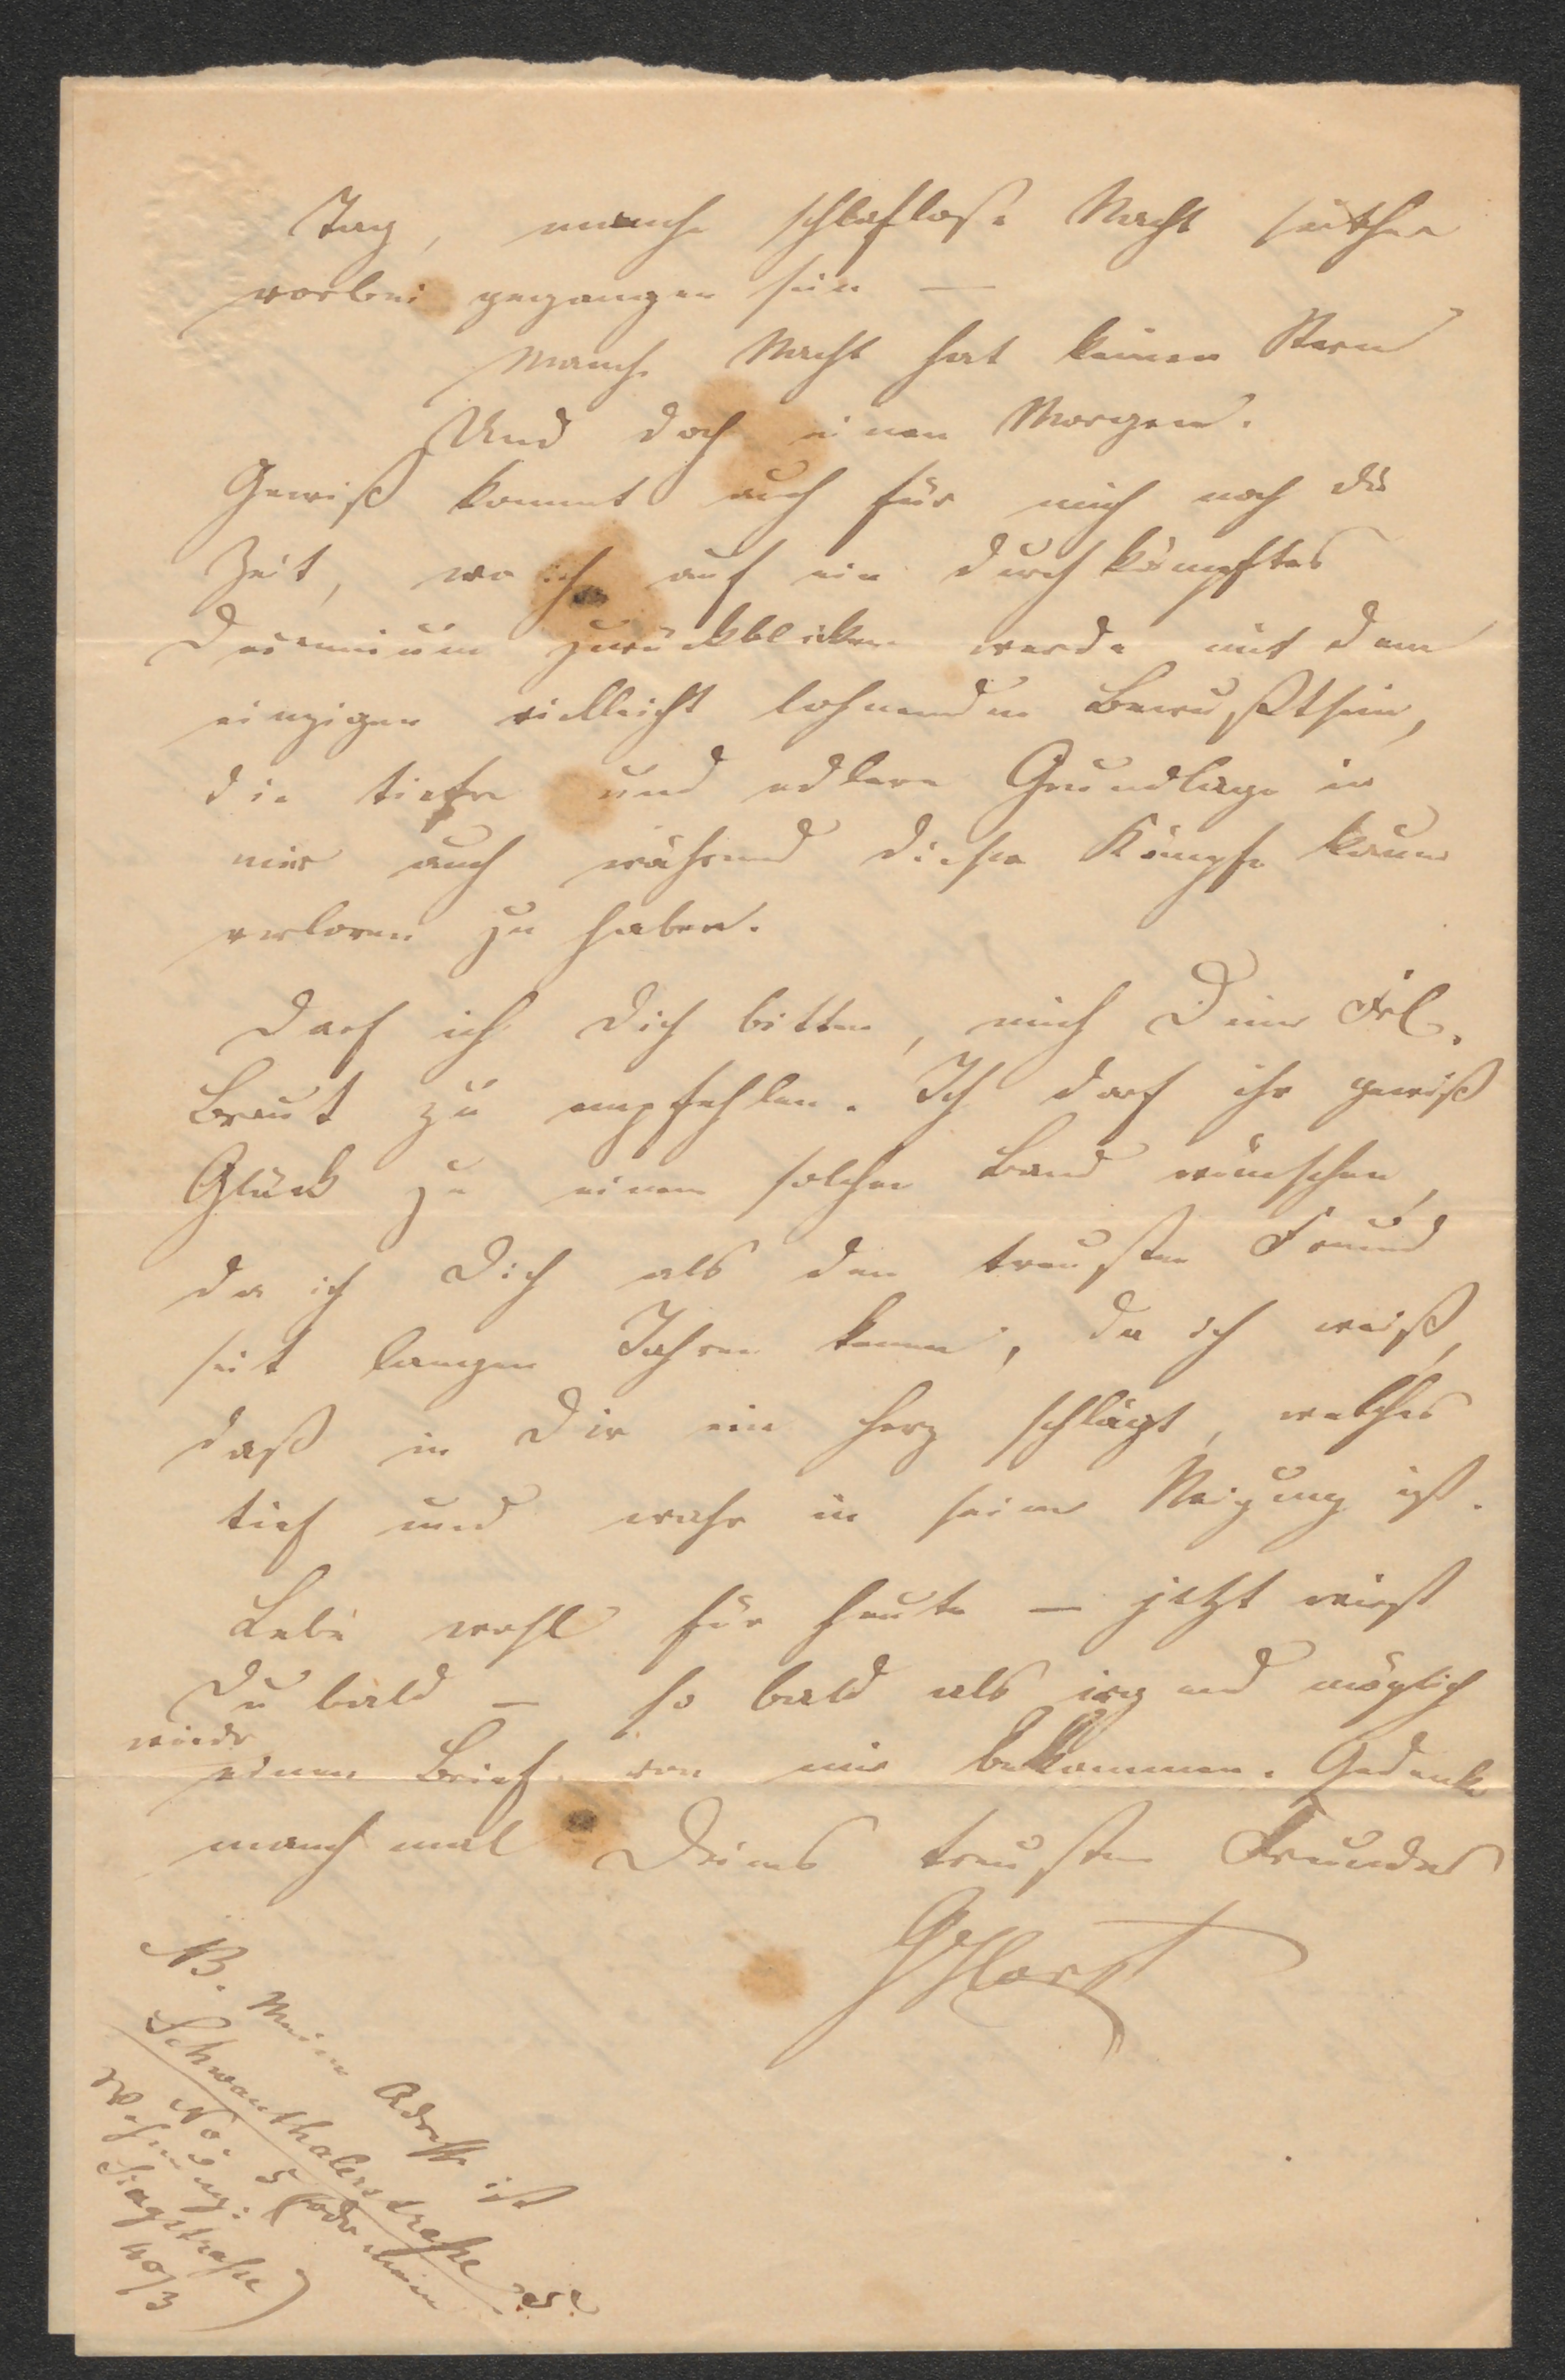 Tag, manche schlaflose Nacht seither
vorbei gegangen sein —
Manche Nacht hat keinen Stern
Und doch einen Morgen.
Gewiß kommt auch für mich noch die
Zeit, wo ich auf ein durchkämpftes
Decennium zurückblicken werde mit dem
einzigen vielleicht lohnenden Bewußtsein,
die tiefere und edlere Grundlage in
mir auch während dieser Kämpfe kaum
verloren zu haben.
Darf ich Dich bitten, mich Deiner Frl.
Braut zu empfehlen. Ich darf ihr gewiß
Glück zu einem solchen Band wünschen,
da ich Dich als den treusten Freund
seit langen Jahren kenne, da ich weiß,
daß in Dir ein Herz schlägt, welches
tief und wahr in seiner Neigung ist.
Lebe wohl für heute — jetzt wirst
Du bald — so bald als irgend möglich
wieder
einen Brief von mir bekommen. Gedenke
manchmal Deines treusten Freundes
NB. Meine Adresse ist
Schwanthalerstraße
No 5 (oder meine
Wohnung:
40/3